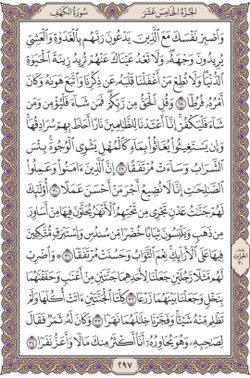 الجزء الخامس عشر
سورة الكهف
وَٱصْبِرْ نَفْسَكَ مَعَ ٱلَّذِينَ يَدْعُونَ رَبَّهُم بِٱلْغَدَوٰةِ وَٱلْعَشِيِّ
يُرِيدُونَ وَجْهَهُۥ ۖ وَلَا تَعْدُ عَيْنَاكَ عَنْهُمْ تُرِيدُ زِينَةَ ٱلْحَيَوٰةِ
ٱلدُّنْيَا ۖ وَلَا تُطِعْ مَنْ أَغْفَلْنَا قَلْبَهُۥ عَن ذِكْرِنَا وَٱتَّبَعَ هَوَىٰهُ وَكَانَ
أَمْرُهُۥ فُرُطًا ٢٨ وَقُلِ ٱلْحَقُّ مِن رَّبِّكُمْ ۖ فَمَن شَآءَ فَلْيُؤْمِن وَمَن
شَآءَ فَلْيَكْفُرْ ۚ إِنَّآ أَعْتَدْنَا لِلظَّٰلِمِينَ نَارًا أَحَاطَ بِهِمْ سُرَادِقُهَا ۚ
وَإِن يَسْتَغِيثُوا۟ يُغَاثُوا۟ بِمَآءٍ كَٱلْمُهْلِ يَشْوِى ٱلْوُجُوهَ ۚ بِئْسَ
ٱلشَّرَابُ وَسَآءَتْ مُرْتَفَقًا ٢٩ إِنَّ ٱلَّذِينَ ءَامَنُوا۟ وَعَمِلُوا۟
ٱلصَّٰلِحَٰتِ إِنَّا لَا نُضِيعُ أَجْرَ مَنْ أَحْسَنَ عَمَلًا ٣٠ أُو۟لَٰٓئِكَ
لَهُمْ جَنَّٰتُ عَدْنٍ تَجْرِى مِن تَحْتِهِمُ ٱلْأَنْهَٰرُ يُحَلَّوْنَ فِيهَا مِنْ أَسَاوِرَ
مِن ذَهَبٍ وَيَلْبَسُونَ ثِيَابًا خُضْرًا مِّن سُندُسٍ وَإِسْتَبْرَقٍ مُّتَّكِـِٔينَ
فِيهَا عَلَى ٱلْأَرَآئِكِ ۚ نِعْمَ ٱلثَّوَابُ وَحَسُنَتْ مُرْتَفَقًا ٣١ ۞ وَٱضْرِبْ
لَهُم مَّثَلًا رَّجُلَيْنِ جَعَلْنَا لِأَحَدِهِمَا جَنَّتَيْنِ مِنْ أَعْنَٰبٍ وَحَفَفْنَٰهُمَا
بِنَخْلٍ وَجَعَلْنَا بَيْنَهُمَا زَرْعًا ٣٢ كِلْتَا ٱلْجَنَّتَيْنِ ءَاتَتْ أُكُلَهَا وَلَمْ
تَظْلِم مِّنْهُ شَيْـًٔا ۚ وَفَجَّرْنَا خِلَٰلَهُمَا نَهَرًا ٣٣ وَكَانَ لَهُۥ ثَمَرٌ فَقَالَ
لِصَٰحِبِهِۦ وَهُوَ يُحَاوِرُهُۥٓ أَنَا۠ أَكْثَرُ مِنكَ مَالًا وَأَعَزُّ نَفَرًا ٣٤
الحزب ٣٠
٢٩٧